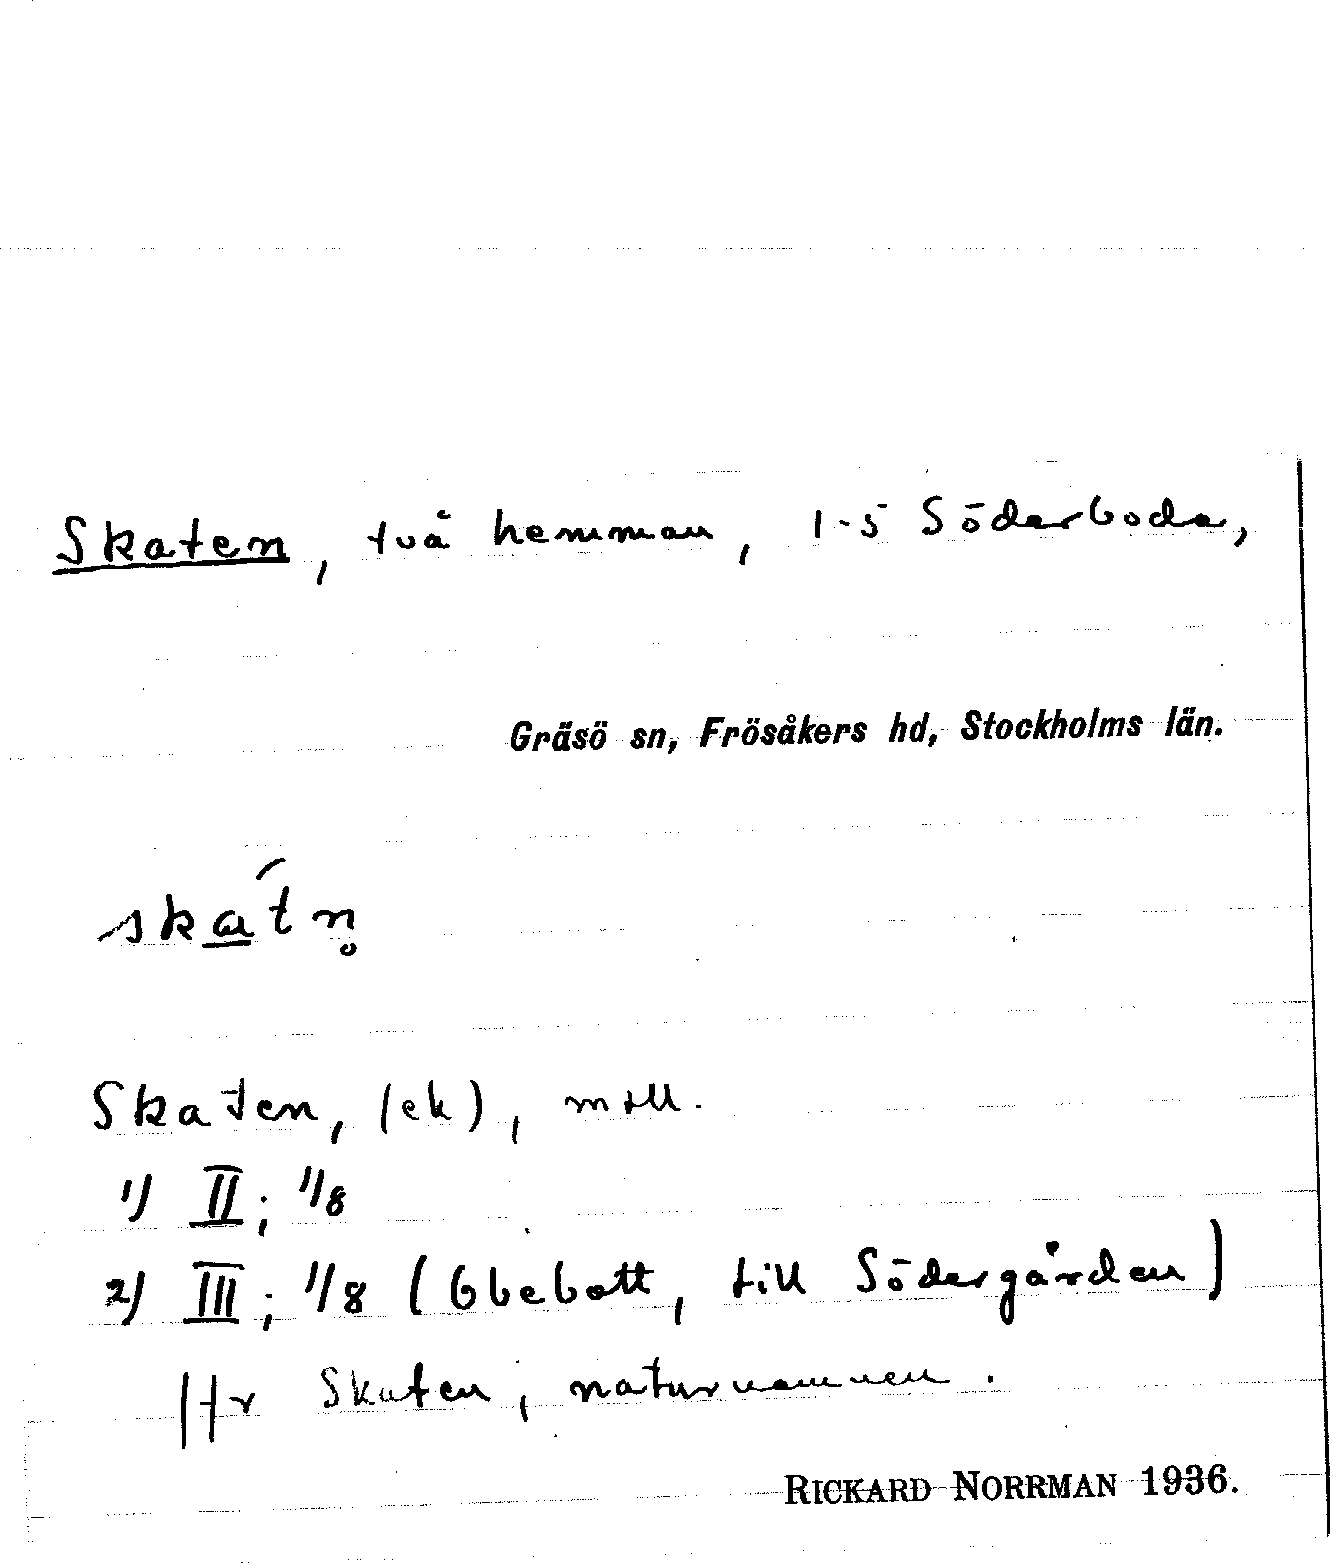 Skaten, två hemman, 1-5 Söderboda,
Gräsö sn, Frösåkers hd, Stockholms län.
skátn̥
Skaten, (ek), mtll.
1) II; 1/8
2) III; 1/8 (Obebott, till Södergården)
Jfr Skaten, naturnamnen.
RICKARD NORRMAN 1936.